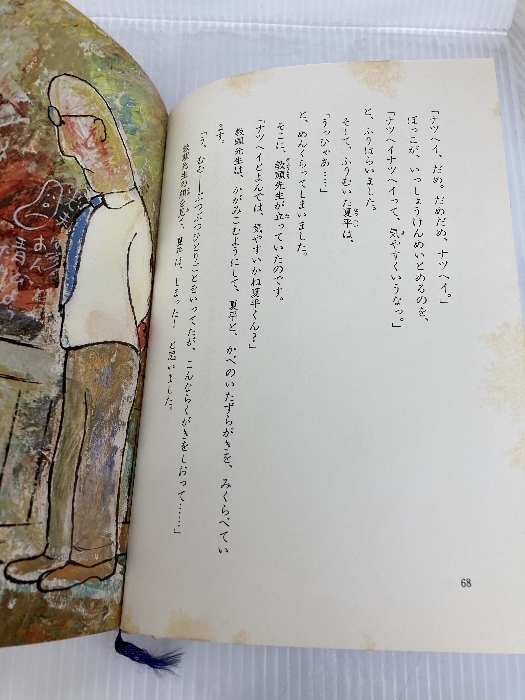 「ナツヘイ、だめ。だめだめ、ナツヘイ。」
ほっこが、いっしょうけんめいとめるのを、
「ナツヘイナツヘイって、気やすくいうなっ。」
と、ふりはらいました。
そして、ふりむいた夏平は、
「うっひゃあ……」
と、めんくらってしまいました。
そこに、教頭先生が立っていたのです。
「ナツヘイとよんでは、気やすいかね夏平くん？」
教頭先生は、かがみこむようにして、夏平と、かべのいたずらがきを、みくらべてい
ます。
「う、むむ――ぶつぶつひとりごとをいってたが、こんならくがきをしおって……」
教頭先生の顔を見て、夏平は、しまった！　と思いました。
68